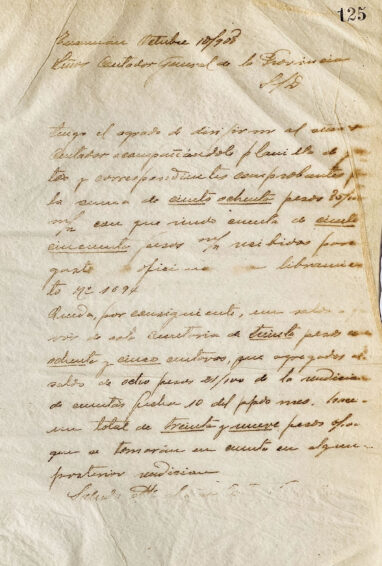 125
Tucumán Octubre 10/908
Señor Contador General de la Provincia
S/D
Tengo el agrado de dirijirme al señor
Contador acompañándole planilla de
tos y correspondientes comprobantes p
la suma de ciento ochenta pesos
m/n con que rindo cuenta de ciento
cincuenta pesos m/n recibidos para
gastos oficina libramien
to No. 1694
Queda, por consiguiente, un saldo a
vor de esta Secretaría de treinta pesos con
ochenta y cinco centavos, que agregados al
saldo de ocho pesos 25/100 de la rendición
de cuentas fecha 10 del ppdo mes, hace
un total de treinta y nueve pesos
que se tomarán en cuenta en alguna
posterior rendición
Saludo